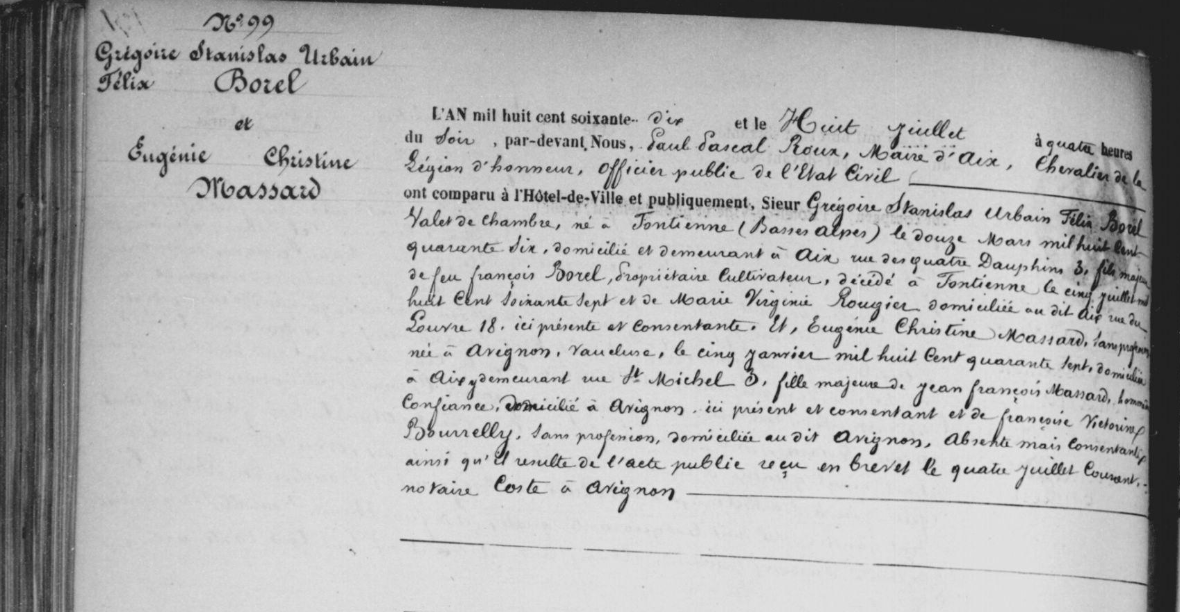 Nº 99
Grégoire Stanislas Urbain
Félix Borel
et
Eugénie Christine
Massard
L'AN mil huit cent soixante-dix et le Huit juillet à quatre heures
du Soir, par-devant Nous, Paul Pascal Roux, Maire d'Aix, Chevalier de la
Légion d'honneur, Officier public de l'Etat Civil
ont comparu à l'Hôtel-de-Ville et publiquement, Sieur Grégoire Stanislas Urbain Félix Borel
Valet de Chambre, né à Fontienne (Basses Alpes) le douze Mars mil huit Cent
quarante Six, domicilié et demeurant à Aix rue des quatre Dauphins 3, fils majeur
de feu françois Borel, Propriétaire Cultivateur, décédé à Fontienne le cinq juillet mil
huit Cent Soixante Sept et de Marie Virginie Rougier domiciliée au dit Aix rue du
Louvre 18. ici présente et Consentante. Et, Eugénie Christine Massard, sans profession
née à Avignon, Vaucluse, le cinq janvier mil huit Cent quarante sept, domiciliée
à Aix y demeurant rue St Michel 3, fille majeure de jean françois Massard,
Confiance, domicilié à Avignon. ici présent et consentant et de françoise Victorine
Bourrelly, Sans profession, domiciliée au dit Avignon, Absente mais Consentante
ainsi qu'il resulte de l'acte public reçu en brevet le quatre juillet Courant,
notaire Coste à Avignon